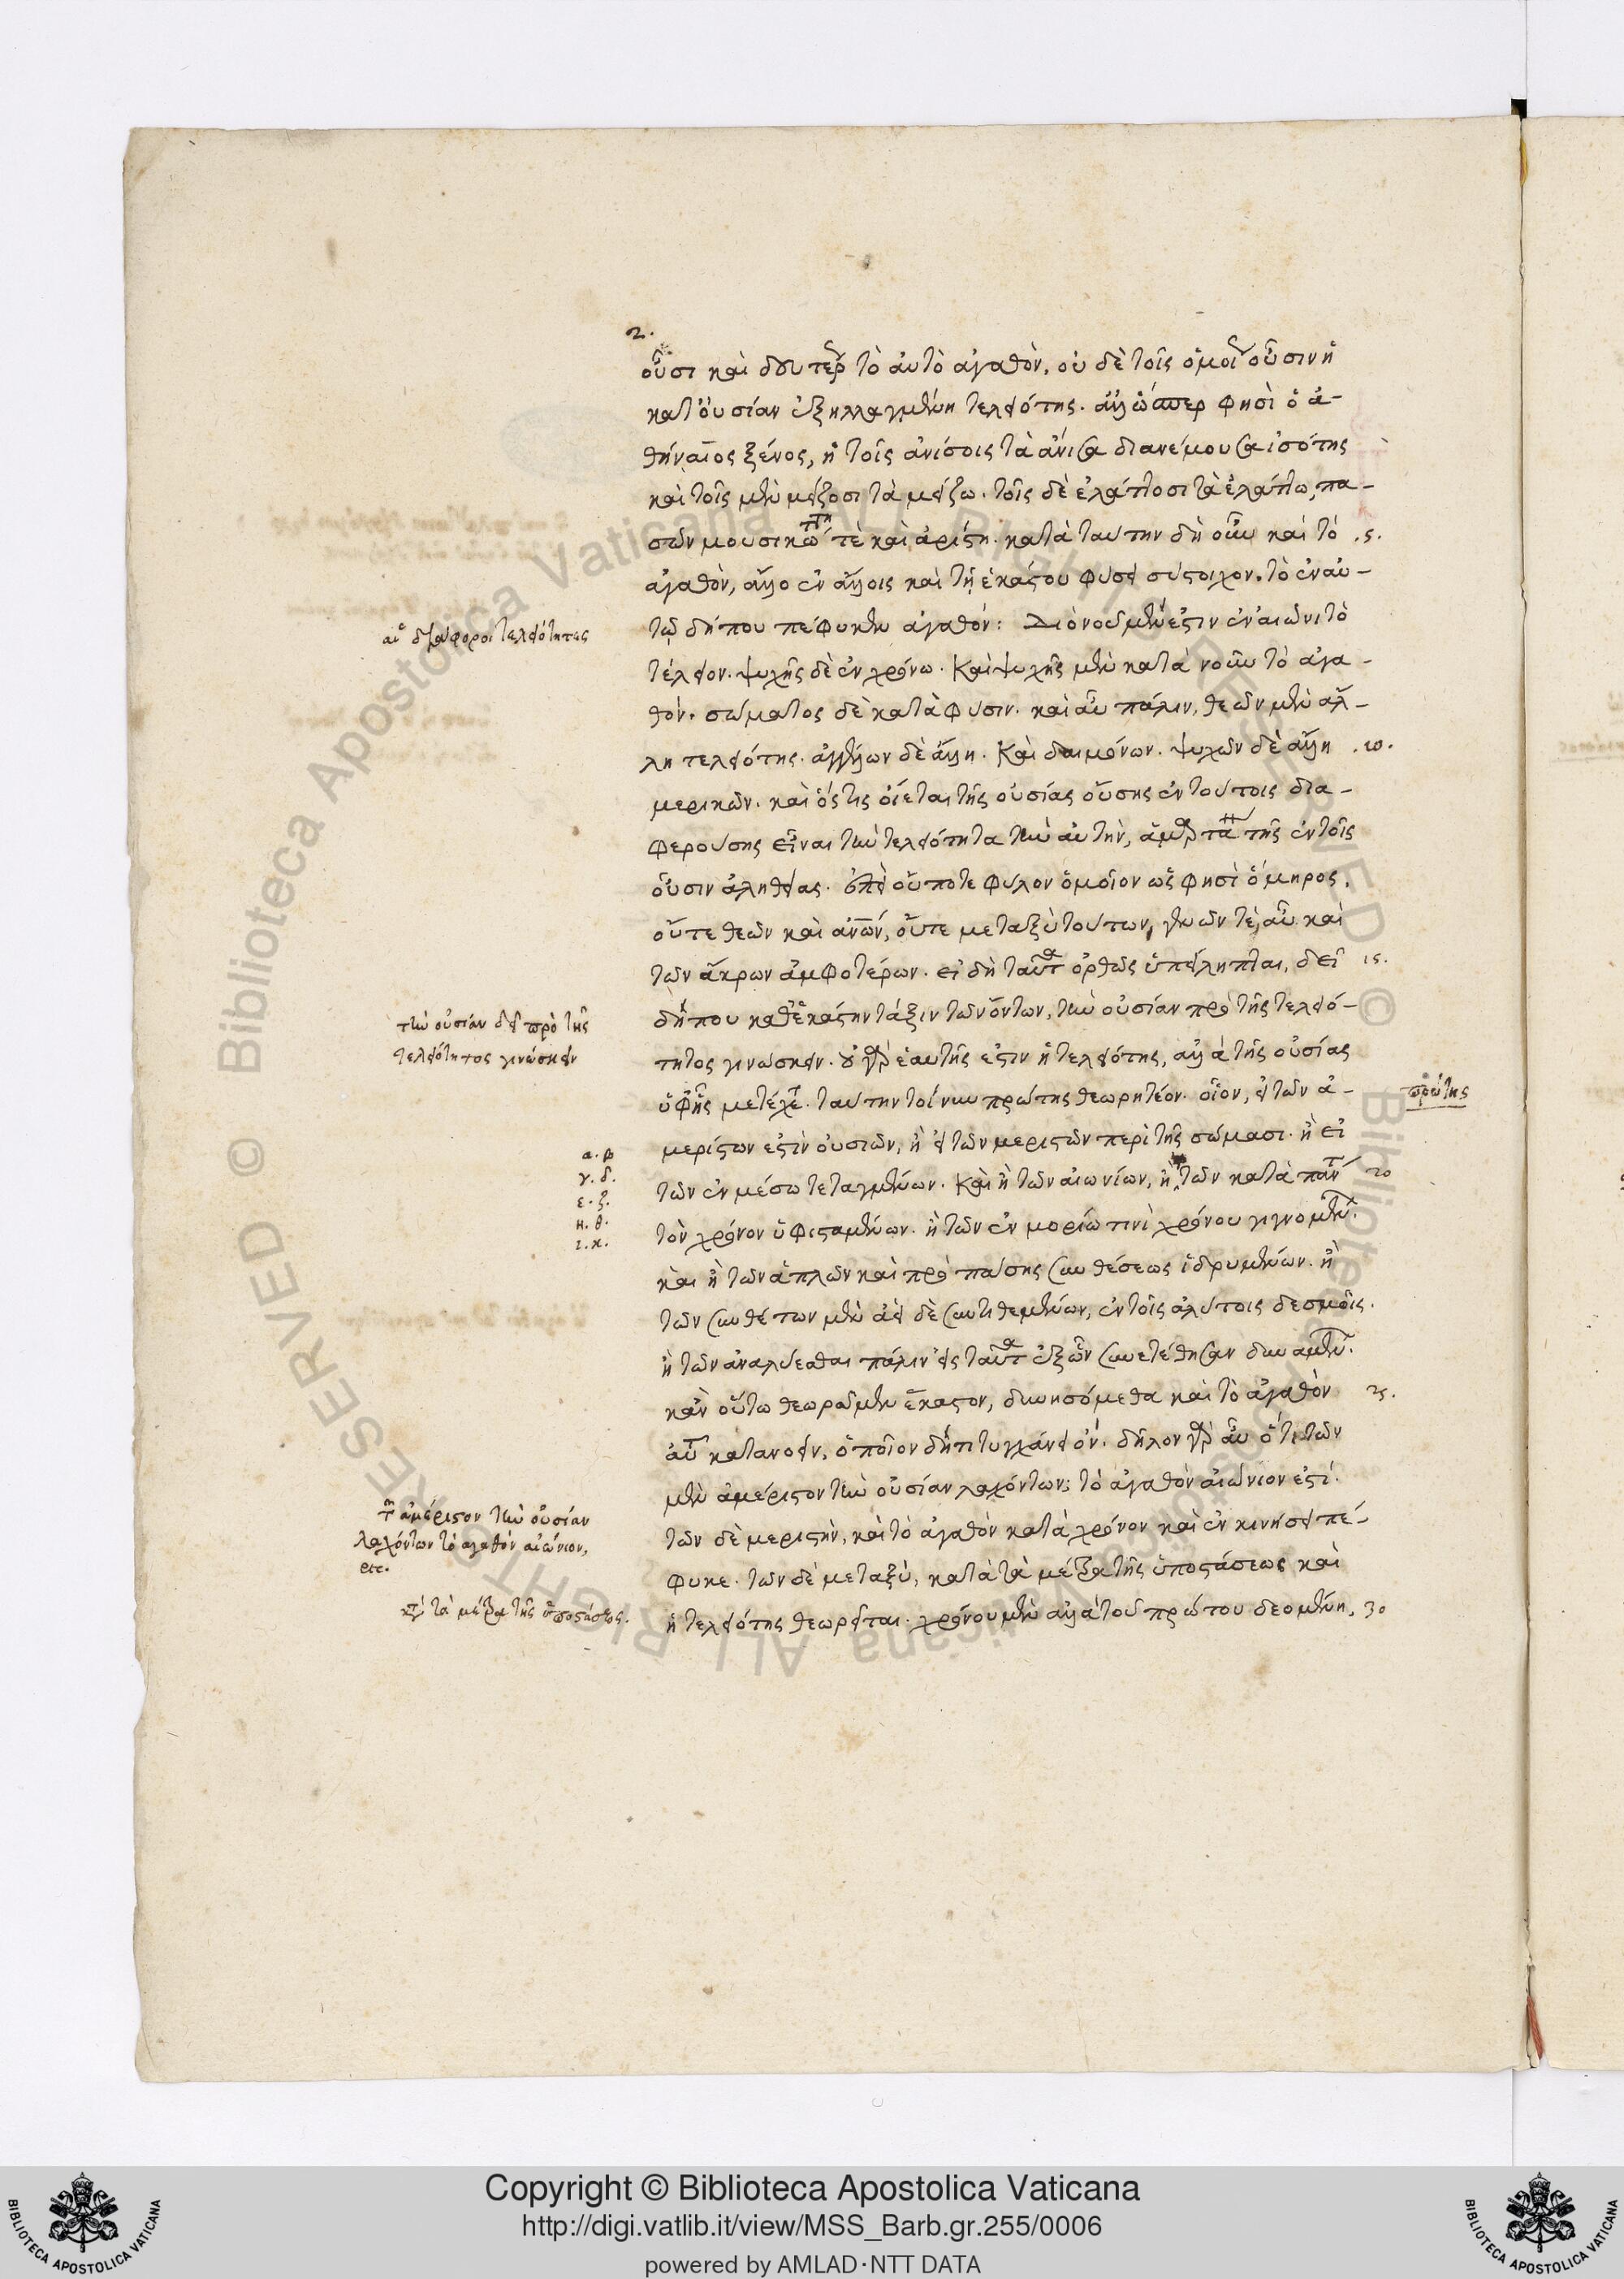 2.
οὖσι καὶ δευτέροις τὸ αὐτὸ ἀγαθὸν. οὐ δὲ τοῖς ὁμοίοις οὖσιν ἡ
κατ' οὐσίαν ἐξηλλαγμένη τελειότης. ἀλλ' ὥσπερ φησὶ ὁ ἀ-
θηναῖος ξένος, ἡ τοῖς ἀνίσοις τὰ ἄνισα διανέμουσα ἰσότης
καὶ τοῖς μὲν μείζοσι τὰ μείζω. τοῖς δὲ ἐλάττοσι τὰ ἐλάττω, πα-
σῶν μουσικωτάτη τὲ καὶ ἀρίστη. κατὰ ταύτην δὴ οὖν καὶ τὸ .5.
ἀγαθὸν, ἄλλο ἐν ἄλλοις καὶ τῇ ἑκάστου φύσει σύστοιχον. τὸ ἐν αὐ-
αἱ διάφοροι τελειότητες
τῷ δήπου πέφυκεν ἀγαθόν: Διὸ νοῦ μέν ἐστιν ἐν αἰῶνι τὸ
τέλειον. ψυχῆς δὲ ἐν χρόνω. Καὶ ψυχῆς μὲν κατὰ νοῦν τὸ ἀγα-
θὸν. σώματος δὲ κατὰ φύσιν. καὶ αὖ πάλιν, θεῶν μὲν ἄλ-
λη τελειότης. ἀγγέλων δὲ ἄλλη. Καὶ δαιμόνων. ψυχῶν δὲ ἄλλη .10.
μερικῶν. καὶ ὅστις οἴεται τῆς οὐσίας οὔσης ἐν τούτοις δια-
φερούσης εἶναι τὴν τελειότητα τὴν αὐτὴν, ἁμαρτάνει τῆς ἐν τοῖς
οὖσιν ἀληθείας. ἐπεὶ οὔποτε φῦλον ὁμοῖον ὥς φησὶ ὅμηρος,
οὔτε θεῶν καὶ ἀνων, οὔτε μεταξὺ τούτων, γενῶν τὲ, αὖ καὶ
τῶν ἄκρων ἀμφοτέρων. εἰ δὴ ταῦτα ὀρθῶς ὑπείληπται, δεῖ 15.
τὴν οὐσίαν δεῖ πρὸ τῆς
τελειότητος γινώσκειν
δήπου καθ' ἑκάστην τάξιν τῶν ὄντων, τὴν οὐσίαν πρὸ τῆς τελειό-
τητος γινώσκειν. οὐ γὰρ ἑαυτῆς ἐστιν ἡ τελειότης, ἀλλὰ τῆς οὐσίας
ὑφ' ἧς μετέχεται. ταύτην τοίνυν πρώτης θεωρητέον. οἷον, εἰ τῶν ἀ-
πρώτης
μερίστων ἐστὶν οὐσιῶν, ἢ εἰ τῶν μεριστῶν περὶ τῆς σώμασι. ἢ εἰ
α. β
γ. δ.
ε. ζ.
η. θ.
ι. κ.
τῶν ἐν μέσω τεταγμένων. Καὶ ἢ τῶν αἰωνίων, ἢ τῶν κατὰ πάντα 20
τὸν χρόνον ὑφισταμένων. ἢ τῶν ἐν μορίω τινὶ χρόνου γιγνομένων.
καὶ ἢ τῶν ἁπλῶν καὶ πρὸ πάσης συνθέσεως ἱδρυμένων. ἢ
τῶν συνθέτων μὲν ἀεὶ δὲ συντιθεμένων, ἐν τοῖς ἀλύτοις δεσμοῖς.
ἢ τῶν ἀναλύεσθαι πάλιν εἰς ταῦτα ἐξ ὧν συνετέθησαν δυναμένων.
κἂν οὕτω θεωρῶμεν ἕκαστον, δυνησόμεθα καὶ τὸ ἀγαθὸν 25.
αὐτῶν κατανοεῖν, ὁποῖον δήτι τυγχάνει ὄν. δῆλον γὰρ αὖ ὅτι τῶν
μὲν ἀμέριστον τὴν οὐσίαν λαχόντων: τὸ ἀγαθὸν αἰώνιον ἐστί.
τῶν ἀμέριστον τὴν οὐσίαν
λαχόντων τὸ ἀγαθὸν αἰώνιον,
etc.
τῶν δὲ μεριστὴν, καὶ τὸ ἀγαθὸν κατὰ χρόνον καὶ ἐν κινήσει πέ-
φυκε. τῶν δὲ μεταξὺ, κατὰ τὰ μέτρα τῆς ὑποστάσεως καὶ
κατὰ τὰ μέτρα τῆς ὑποστάσεως.
ἡ τελειότης θεωρεῖται. χρόνου μὲν ἀλλὰ τοῦ πρώτου δεομένη, 30
Copyright © Biblioteca Apostolica Vaticana
http://digi.vatlib.it/view/MSS_Barb.gr.255/0006
powered by AMLAD·NTT DATA